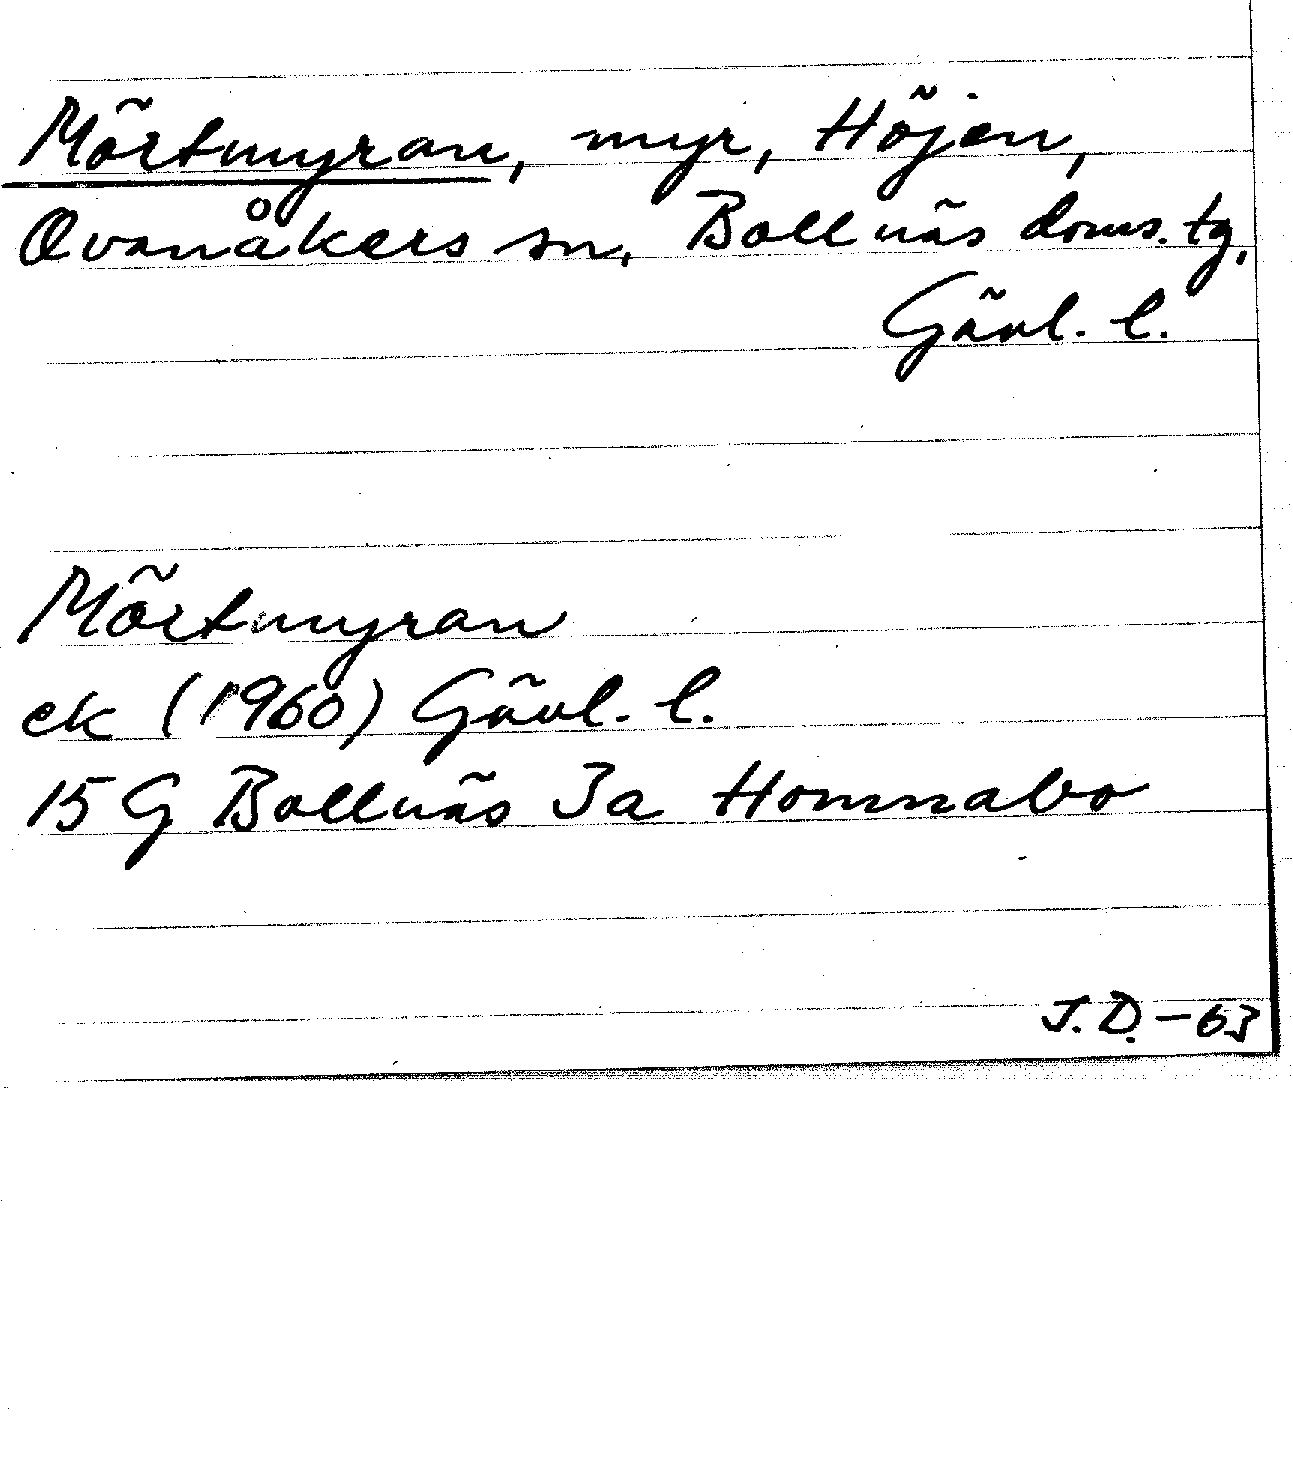 Mörtmyran, myr, Höjen,
Ovanåkers sn, Bollnäs doms. tg,
Gävl. l.
Mörtmyran
ek (1960) Gävl. l.
15 G Bollnäs 3a Homnabo
J.D. - 63